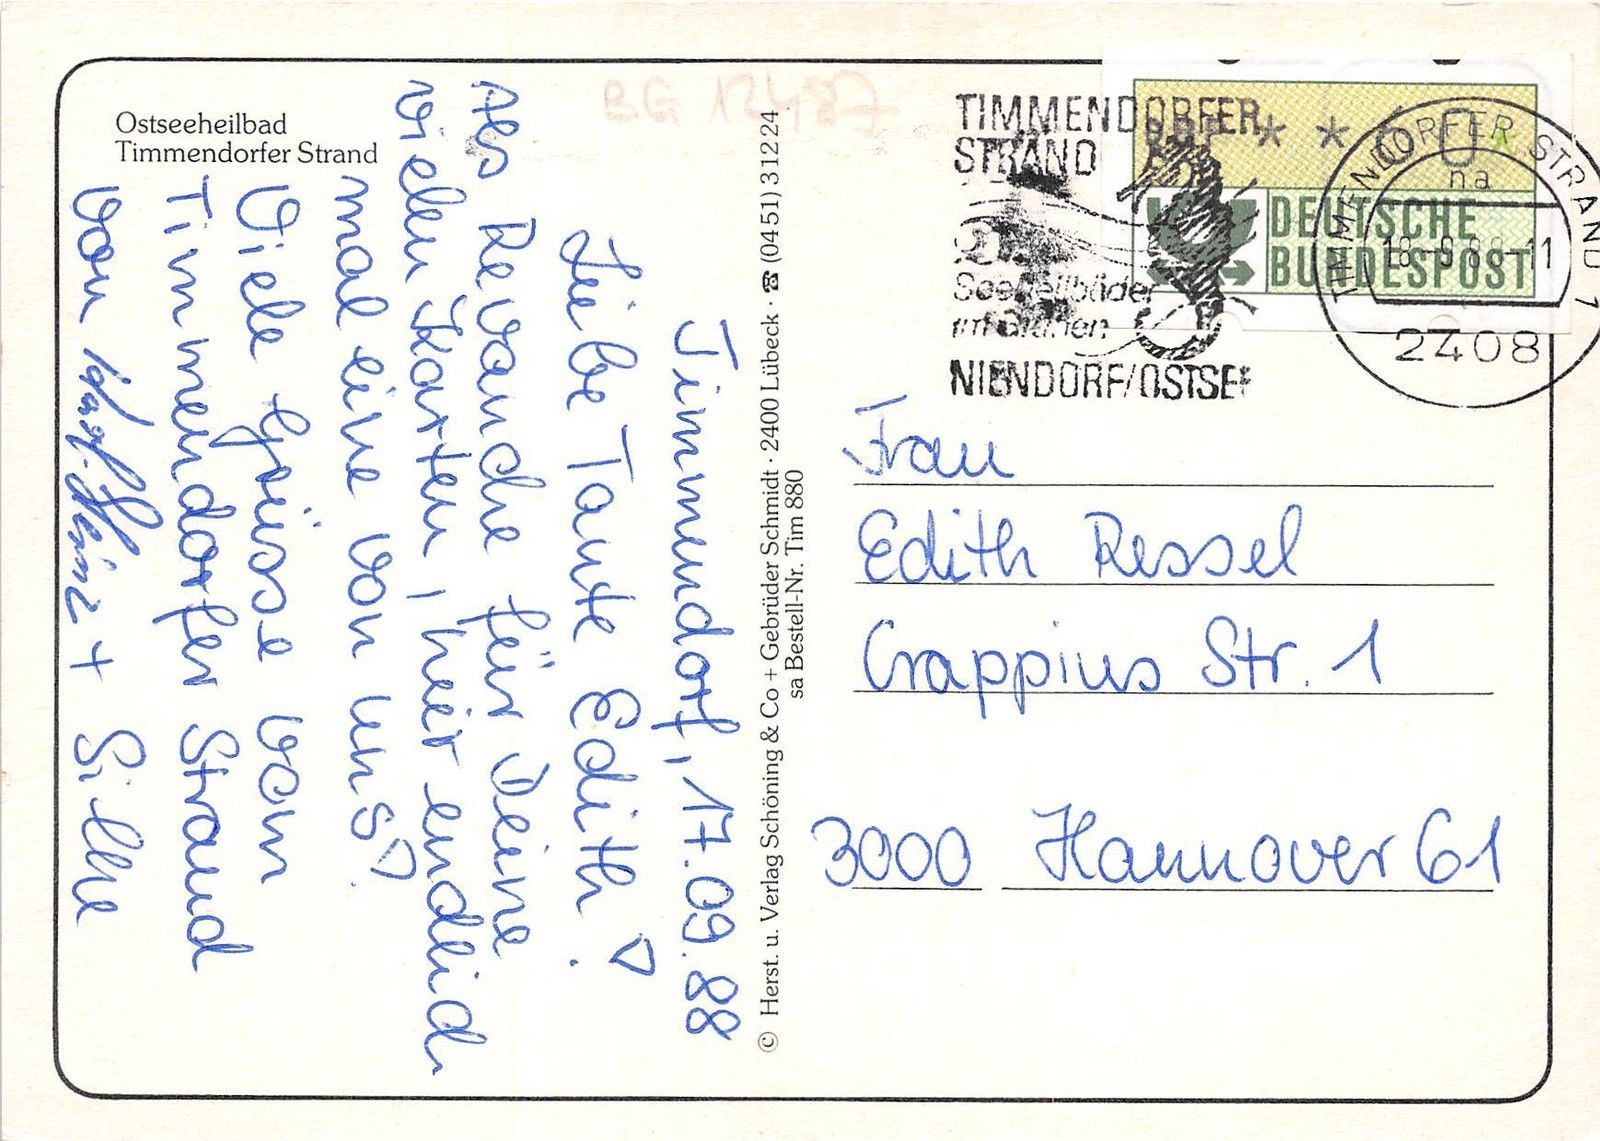 Ostseeheilbad
Timmendorfer Strand
Timmendorf, 17.09.88
Liebe Tante Edith!
Als Revanche für Deine
vielen Karten, hier endlich
mal eine von uns!
Viele Grüsse vom
Timmendorfer Strand
von Karl-Heinz + Silke
© Herst. u. Verlag Schöning & Co + Gebrüder Schmidt · 2400 Lübeck · ☎ (04 51) 3 12 24
sa Bestell-Nr. Tim 880
BG 12487
TIMMENDORFER
STRAND
Seeheilbäder
im Grünen
NIENDORF/OSTSEE
DEUTSCHE
BUNDESPOST
TIMMENDORFER STRAND 1
na
18.-9.88-11
2408
Frau
Edith Ressel
Crappius Str. 1
3000 Hannover 61